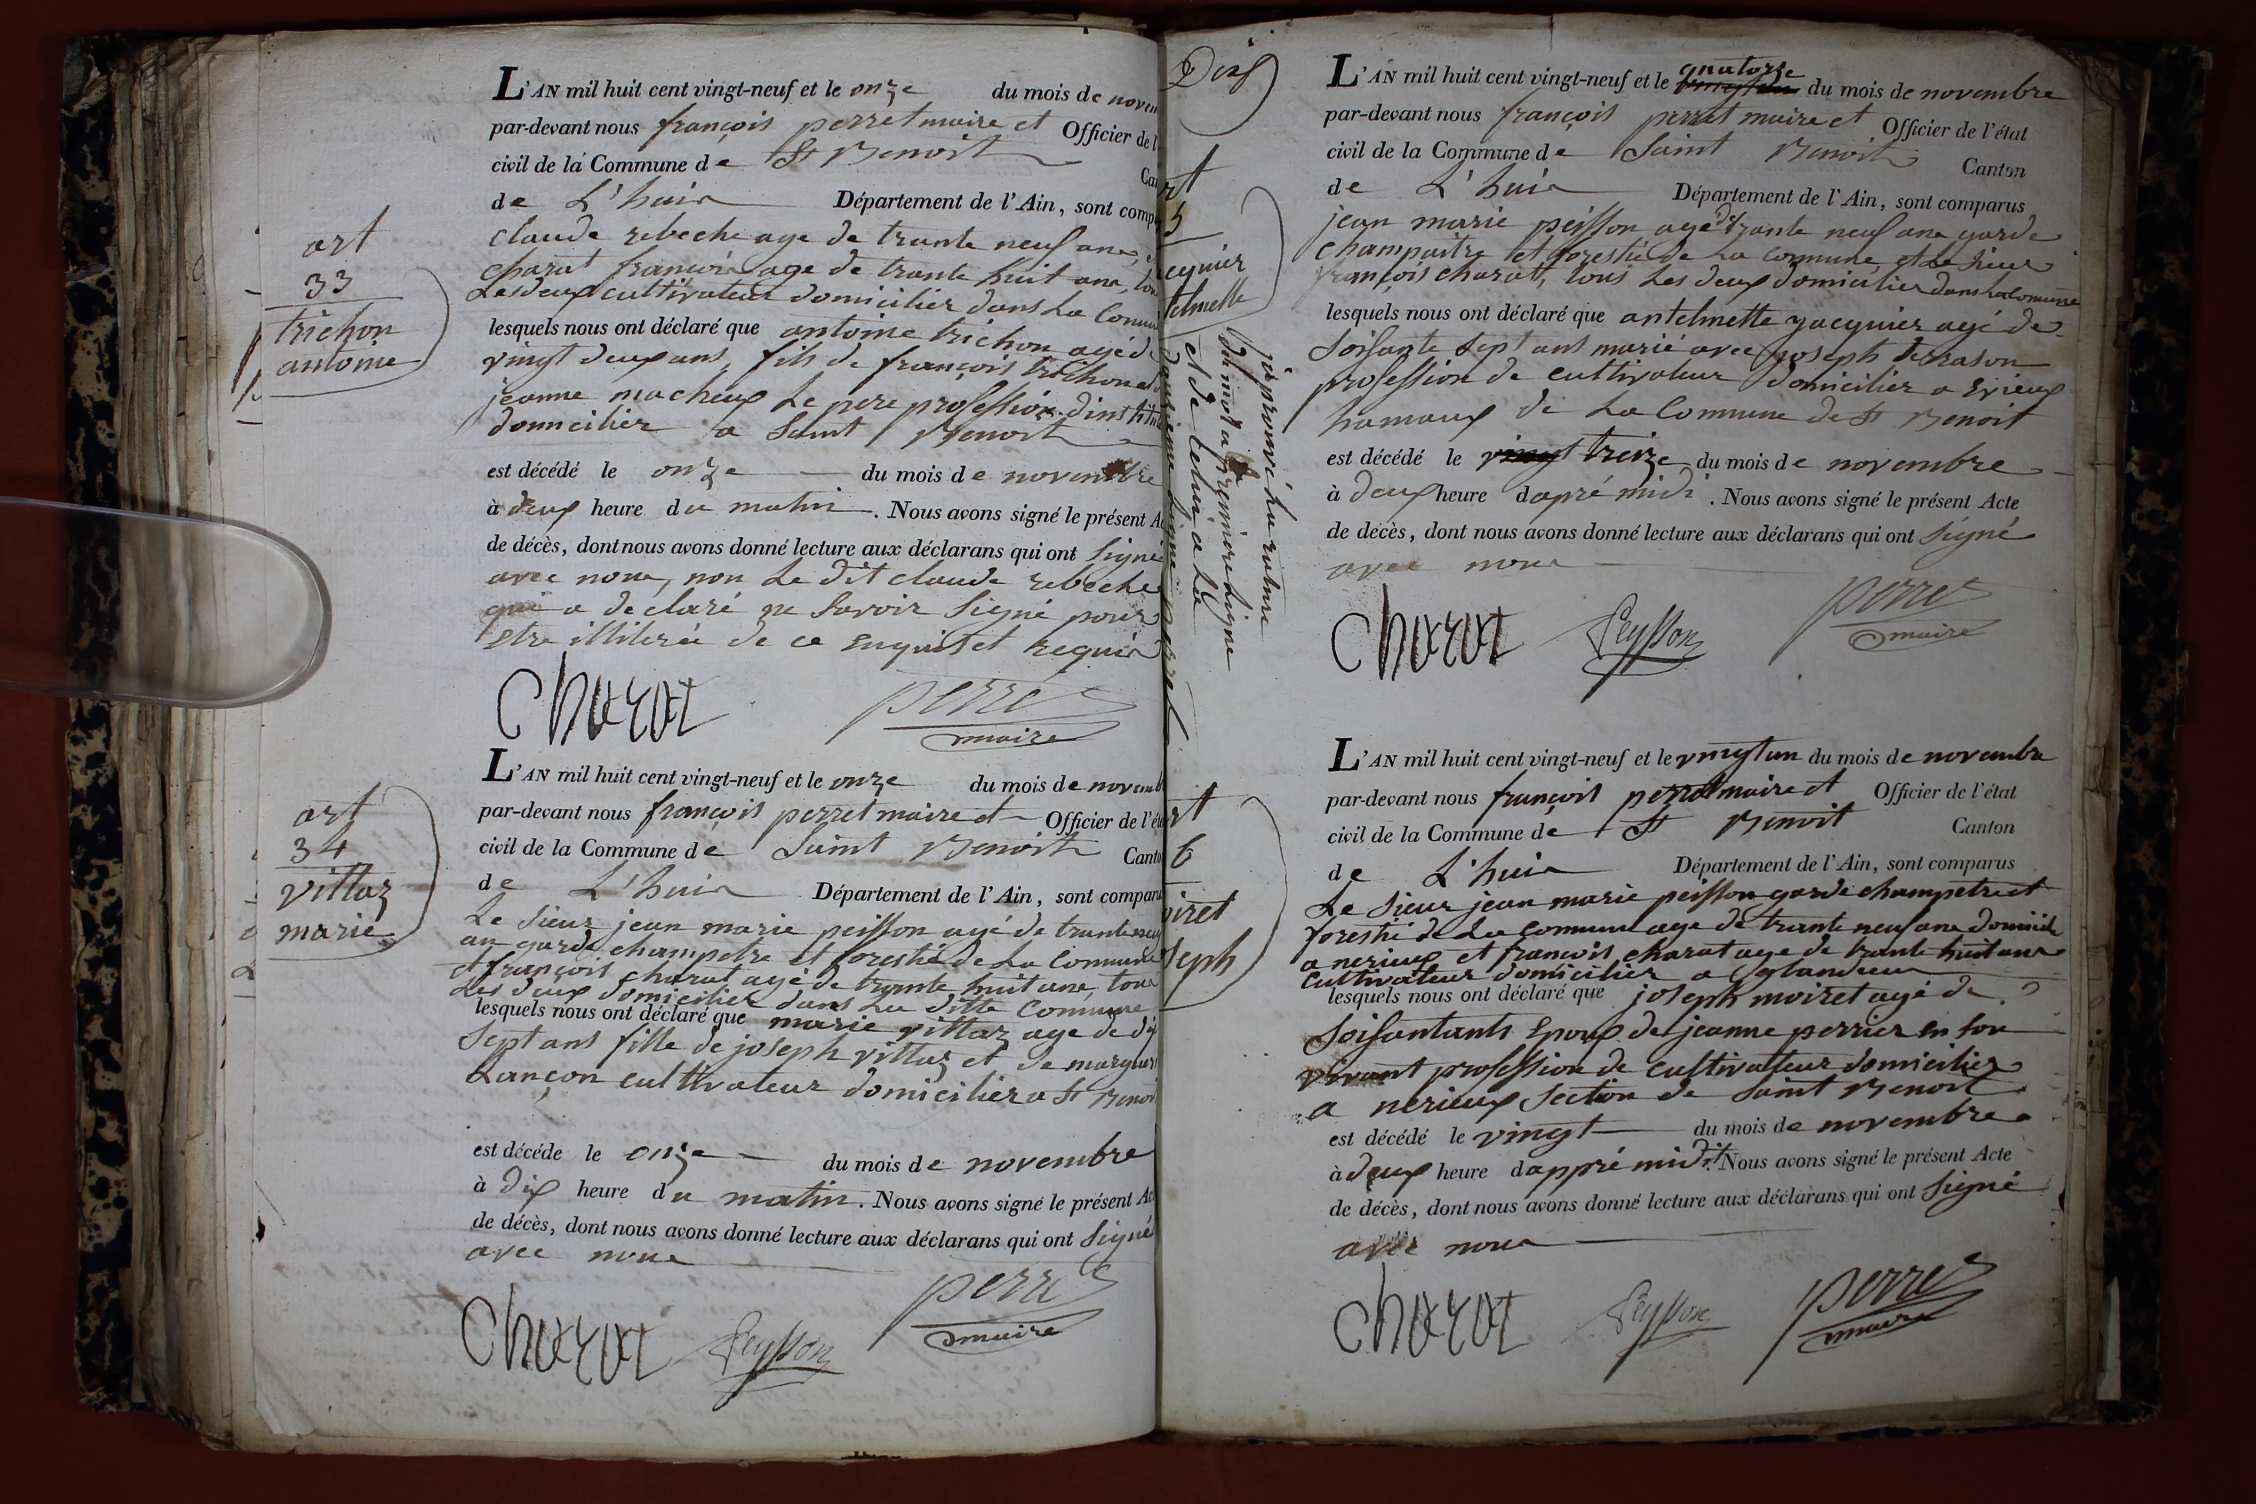 L'AN mil huit cent vingt-neuf et le onze du mois de novem
par-devant nous françois perret maire et Officier de l'
civil de la Commune de St Benoit Can
de L'huis Département de l'Ain, sont comp
art
33
trichon
antoine
claude rebeche age de trante neuf ans,
Charat françois age de trante huit ans, tou
Les deux cultivateur domicilier dans La Commu
lesquels nous ont déclaré que antoine trichon agé de
vingt deux ans, fils de françois trichon et
jeanne macheux Le pere profession d'institut
domicilier a Saint Benoit
est décédé le onze du mois de novembre
à deux heure du matin. Nous avons signé le présent A
de décès, dont nous avons donné lecture aux déclarans qui ont signé
avec nous, non Le dit claude rebeche
qui a déclaré ne savoir signé pour
etre illiterée de ce enquis et requis
Charat perret
maire
L'AN mil huit cent vingt-neuf et le onze du mois de novemb
par-devant nous françois perret maire et Officier de l'éta
civil de la Commune de Saint Benoit Canto
de L'huis Département de l'Ain, sont comparu
art
34
villaz
marie
Le sieur jean marie peisson agé de trante neuf
an garde champetre et forestié de La Commune
et françois charat agé de trante huit ans, tous
Les deux domicilier dans La ditte Commune
lesquels nous ont déclaré que marie villaz age de dix
Sept ans fille de joseph villaz et de marguer
Lançon cultivateur domicilier a St Benoi
est décédé le onze du mois de novembre
à dix heure du matin. Nous avons signé le présent Ac
de décès, dont nous avons donné lecture aux déclarans qui ont signé
avec nous
Charat Peysson perret
maire
L'AN mil huit cent vingt-neuf et le quatorze du mois de novembre
par-devant nous françois perret maire et Officier de l'état
civil de la Commune de Saint Benoit Canton
de L'huis Département de l'Ain, sont comparus
rt
5
cquier
telmette
jean marie peisson agé de trante neuf ans garde
champaitre et forestié de La Commune et Le sieur
françois charat, tous Les deux domicilier dans La Comune
lesquels nous ont déclaré que antelmette jacquier agé de
Soisante Sept ans marié avec joseph terrason
profession de cultivateur domicilier a Erieux
hamaux de La Commune de St Benoit
est décédé le vingt treize du mois de novembre
à deux heure d'apré midi. Nous avons signé le présent Acte
de décès, dont nous avons donné lecture aux déclarans qui ont signé
avec nous
Charat Peysson perret
maire
japrouvé La rature
du mot a La premiere Ligne
et de Celui a La
quinsieme Ligne perret
L'AN mil huit cent vingt-neuf et le vingt un du mois de novembre
par-devant nous françois perret maire et Officier de l'état
civil de la Commune de St Benoit Canton
de L'huis Département de l'Ain, sont comparus
rt
6
oiret
seph
Le sieur jean marie peisson garde champetre et
forestié de La Commune age de trante neuf ans domicile
a nerieux et françois charat age de trante huit ans
Cultivateur domicilier a glandieu
lesquels nous ont déclaré que joseph moiret agé de
Soisantants Epoux de jeanne perrier en son
vivant profession de cultivateur domicilier
a nerieux Section de Saint Benoit
est décédé le vingt du mois de novembre
à deux heure d'appré midit. Nous avons signé le présent Acte
de décès, dont nous avons donné lecture aux déclarans qui ont signé
avec nous
Charat Peysson perret
maire